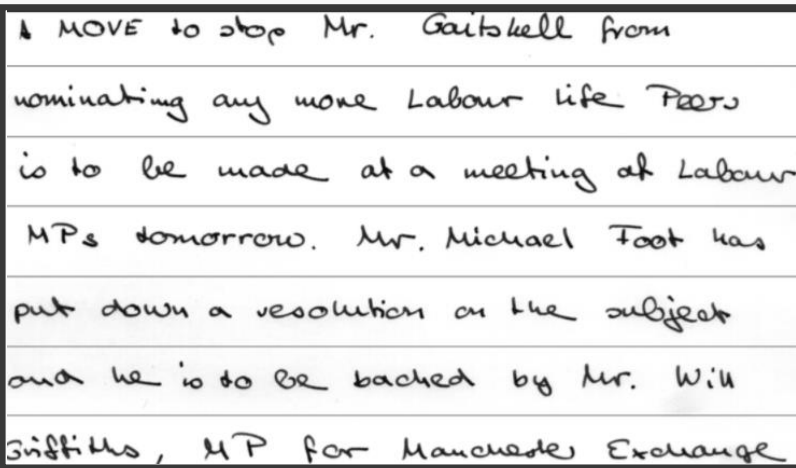 A MOVE to stop Mr. Gaitskell from
nominating any more Labour life Peers
is to be made at a meeting of Labour
MPs tomorrow. Mr. Michael Foot has
put down a resolution on the subject
and he is to be backed by Mr. Will
Griffiths, MP for Manchester Exchange